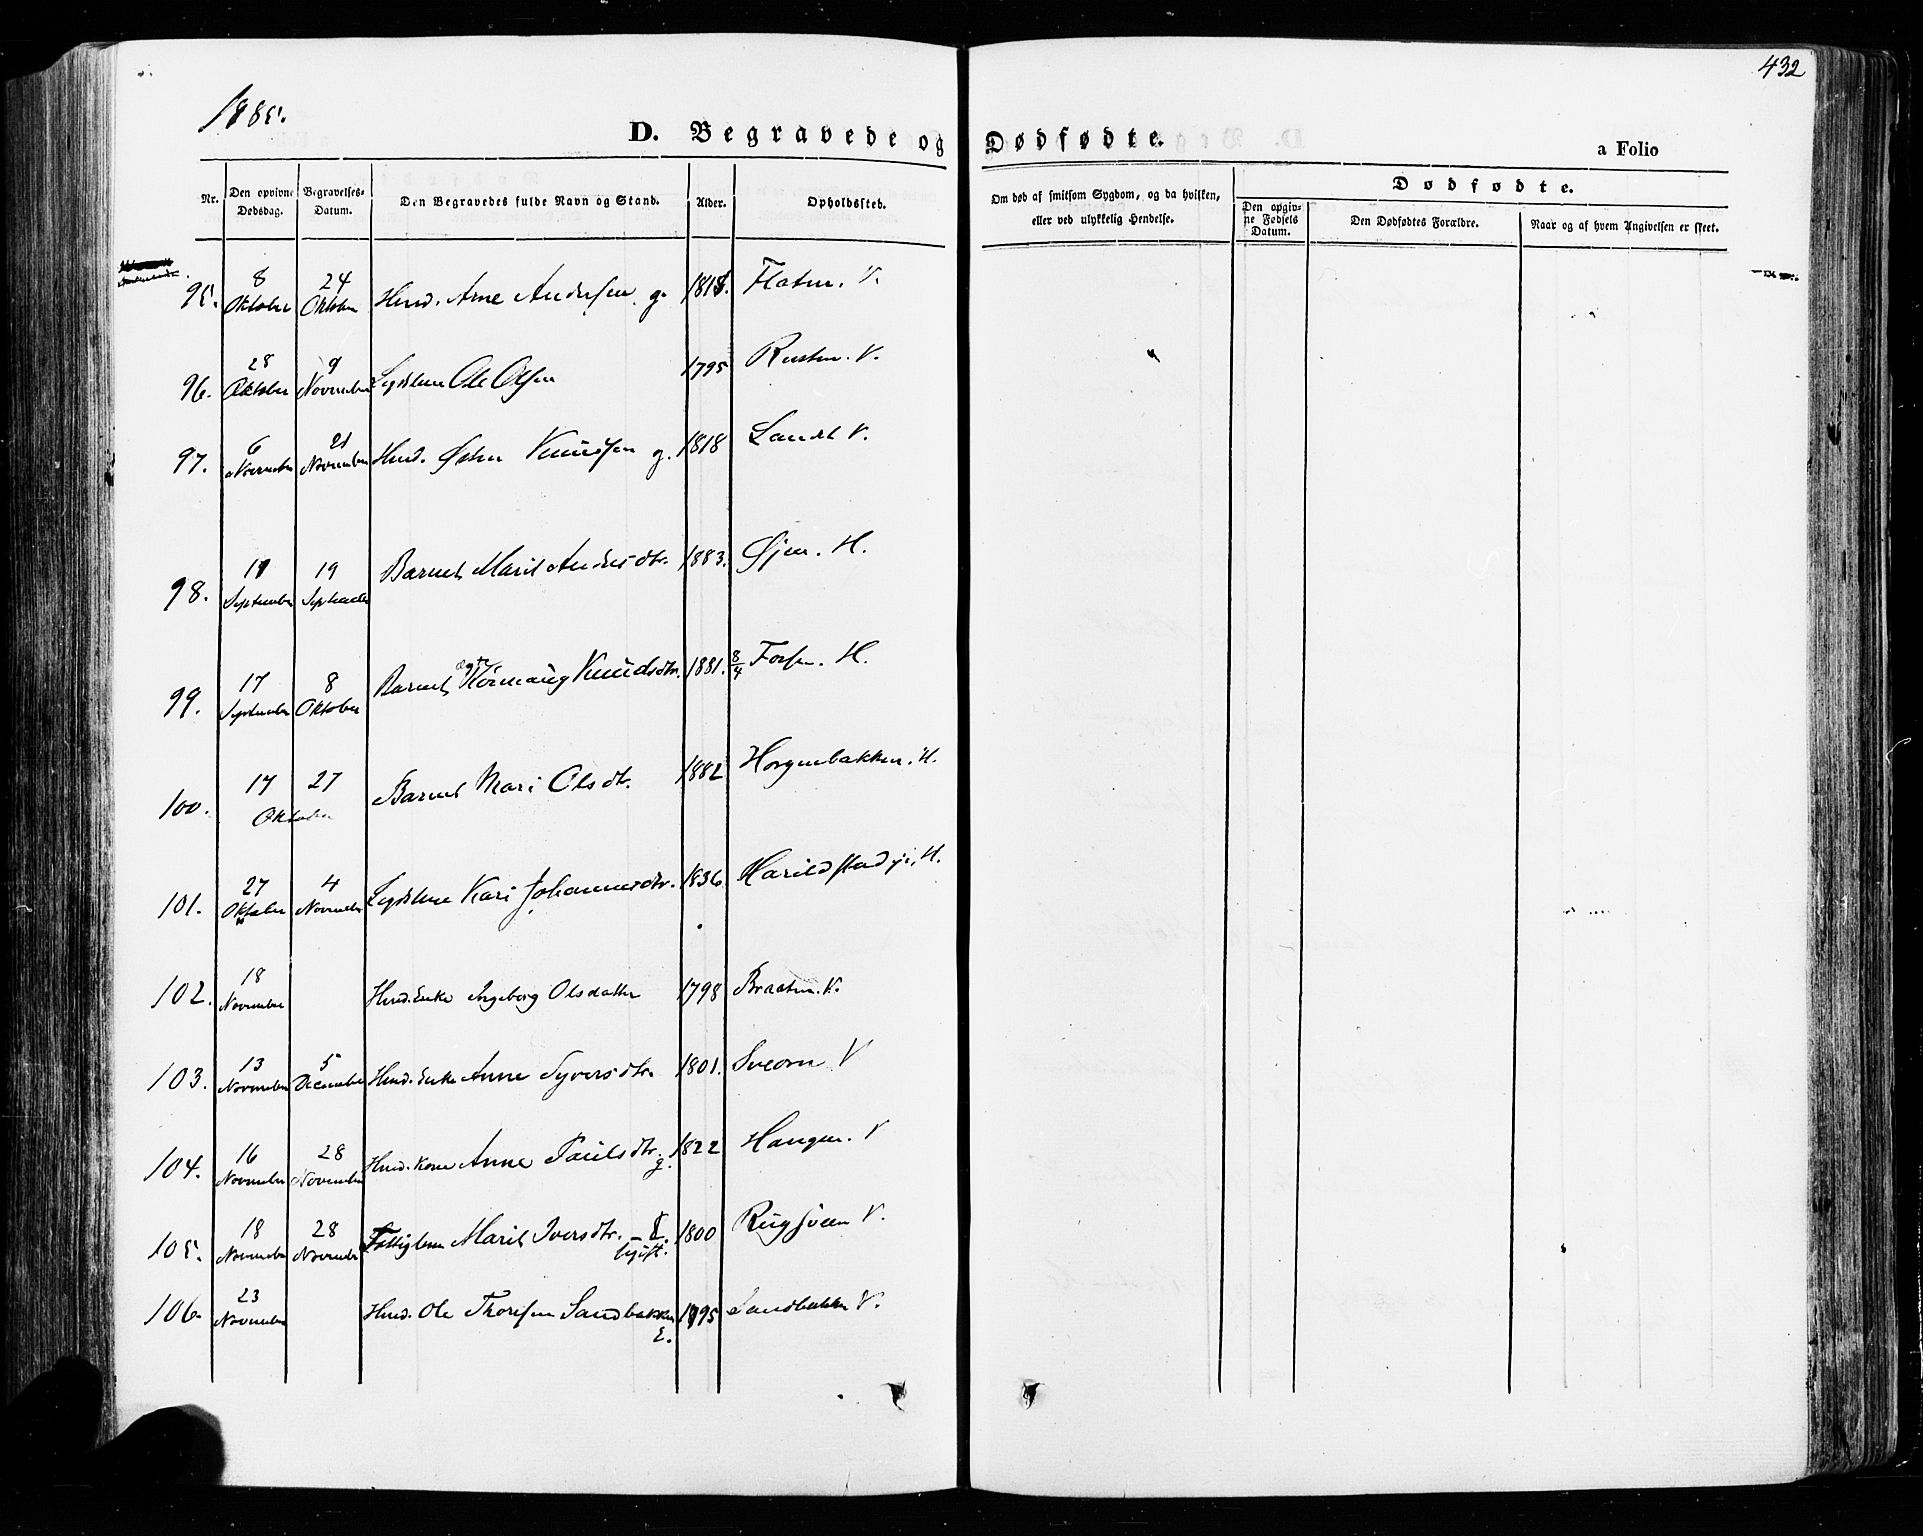 432
1885.
D. Begravede og Dødfødte.
a Folio
Nr. Den opgivne Dødsdag. Begravelses-Datum. Den Begravedes fulde Navn og Stand. Alder. Opholdssted. Om død af smitsom Sygdom, og da hvilken, eller ved ulykkelig Hendelse. Dødfødte.
Den opgivne Fødsels Datum. Den Dødfødtes Forældre. Naar og af hvem Angivelsen er skeet.
95. 8 Oktober 24 Oktober Husd. Arne Andersen g. 1818. Flaten. V.
96. 28 Oktober 9 November Lægdslem Ole Olsen 1795 Rusten. V.
97. 6 November 21 November Husd. Østen Knudsen g. 1818 Sande V.
98. 11 September 19 September Barnet Marit Andersdtr. 1883. Øjen. H.
99. 17 September 8 Oktober Barnet ægte Rønnaug Knudsdtr. 1881. 8/4 Forsen. H.
100. 17 27 Oktober Barnet Mari Olsdtr. 1882 Horgenbakken. H.
101. 27 Oktober 4 November Lægdslem Kari Johannesdtr. 1836 Harildstadeje. H.
102. 18 November Husd. Enke Ingeborg Olsdatter 1798 Braaten. V.
103. 13 November 5 December Husd. Enke Anne Syversdtr. 1801. Sveom V
104. 16 November 28 November Husd. Kone Anne Paulsdtr. g. 1822 Haugen. V
105. 18 November 28 November Fattiglem Marit Iversdtr. – E. ugift. 1800 V.
106. 23 November Husd. Ole Thoresen Sandbakken E. 1795 Sandbakken V.